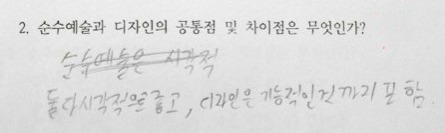 2. 순수예술과 디자인의 공통점 및 차이점은 무엇인가?
순수예술은 시각적
둘다시각적으로좋고, 디자인은 기능적인것까지 포함